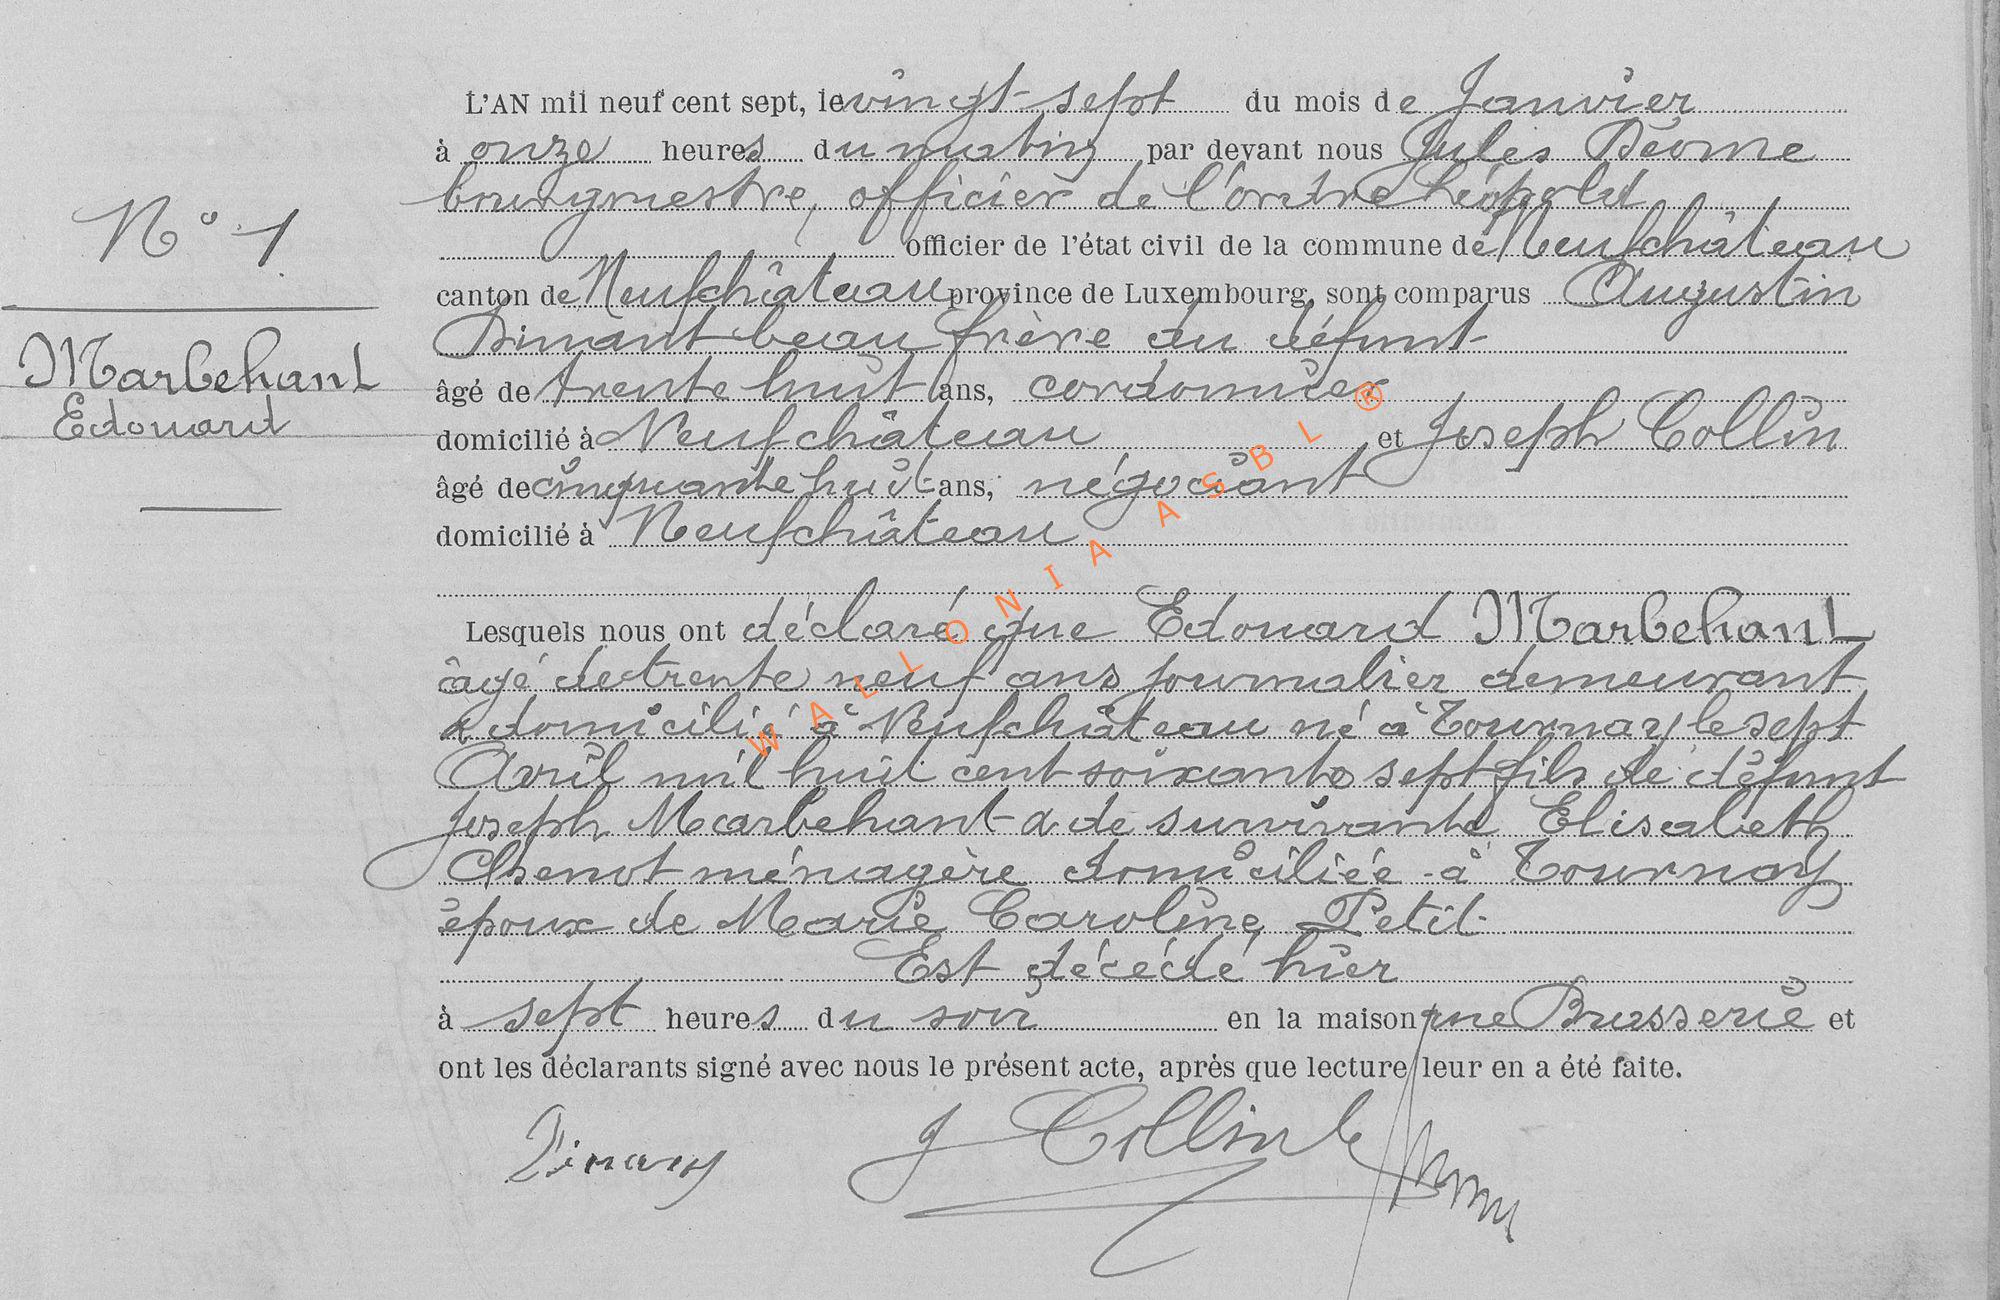 N° 1
Marbehant
Edouard
L'AN mil neuf cent sept, le vingt-sept du mois de Janvier
à onze heures du matin par devant nous Jules
bourgmestre, officier de l'ordre Léopold
officier de l'état civil de la commune de Neufchâteau
canton de Neufchâteau province de Luxembourg, sont comparus Augustin
Dinant beau frère du défunt
âgé de trente huit ans, cordonnier
domicilié à Neufchâteau et Joseph Collin
âgé de cinquante huit ans, négociant
domicilié à Neufchâteau
Lesquels nous ont déclaré que Edouard Marbehant
âgé de trente neuf ans journalier demeurant
& domicilié à Neufchâteau né à Tournay le sept
Avril mil huit cent soixante sept fils de défunt
Joseph Marbehant & de survivante Elisabeth
Chenot ménagère domiciliée à Tournay
époux de Marie Caroline Petit
Est décédé hier
à sept heures du soir en la maison rue Brasserie et
ont les déclarants signé avec nous le présent acte, après que lecture leur en a été faite.
J Collin
WALLONIA ASBL ®